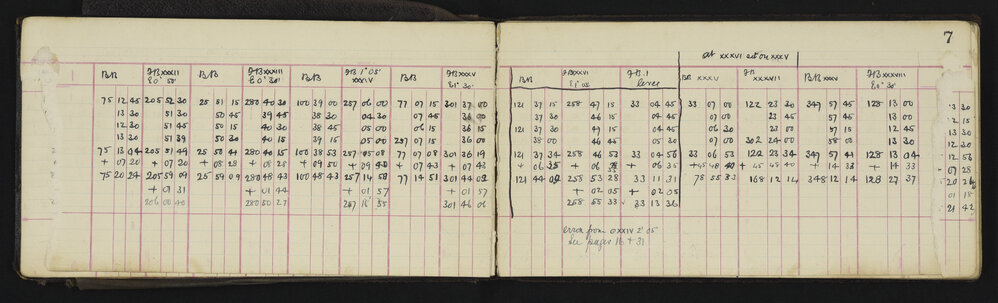 7
at XXXVI set on XXXV
BB FB XXXII BB FB XXXIII BB FB 1° 05' BB FB XXXV
XXXIV
BB FB XXXVI FB.1 BB XXXV FB BB XXXV FB XXXIII
XXXVII
75 12 45 205 52 30 25 51 15 280 40 30 100 39 00 257 06 00 77 07 15 301 37 00
13 30 51 30 50 45 39 45 38 30 04 30 07 45 36 00
12 30 51 45 50 15 40 30 38 45 05 00 06 15 36 15
13 30 51 39 50 30 40 15 39 15 05 00 257 07 15 36 00
75 13 04 205 51 49 25 50 41 280 40 15 100 38 53 257 05 08 77 07 08 301 36 19
+ 07 20 + 07 20 + 08 28 + 08 28 + 09 50 + 07 43 + 07 43
75 20 24 205 59 09 25 59 09 280 48 43 100 48 43 257 14 58 77 14 51 301 44 02
+ 01 31 + 01 44 + 01 57 + 01 57
206 00 40 280 50 27 301 46 06
121 37 15 258 47 15 33 04 45 33 07 00 122 23 30 347 57 45 128 13 00 13 30
37 30 46 15 04 45 07 00 23 45 57 45 13 30
121 37 30 47 15 04 45 06 30 23 00 57 15 12 45
38 00 46 45 05 30 07 00 302 24 00 58 00 13 30
121 37 34 258 46 53 33 04 56 33 06 53 122 23 34 347 57 41 128 13 04 12 56
+ 06 35 + 14 33 + 07 28
258 53 28 33 11 31 78 55 33 168 12 14 348 12 14 128 27 37 20 24
+ 02 05 + 02 05 01 18
258 55 33 33 13 36 21 42
error from OXXIV 2' 05
See pages 16 + 31